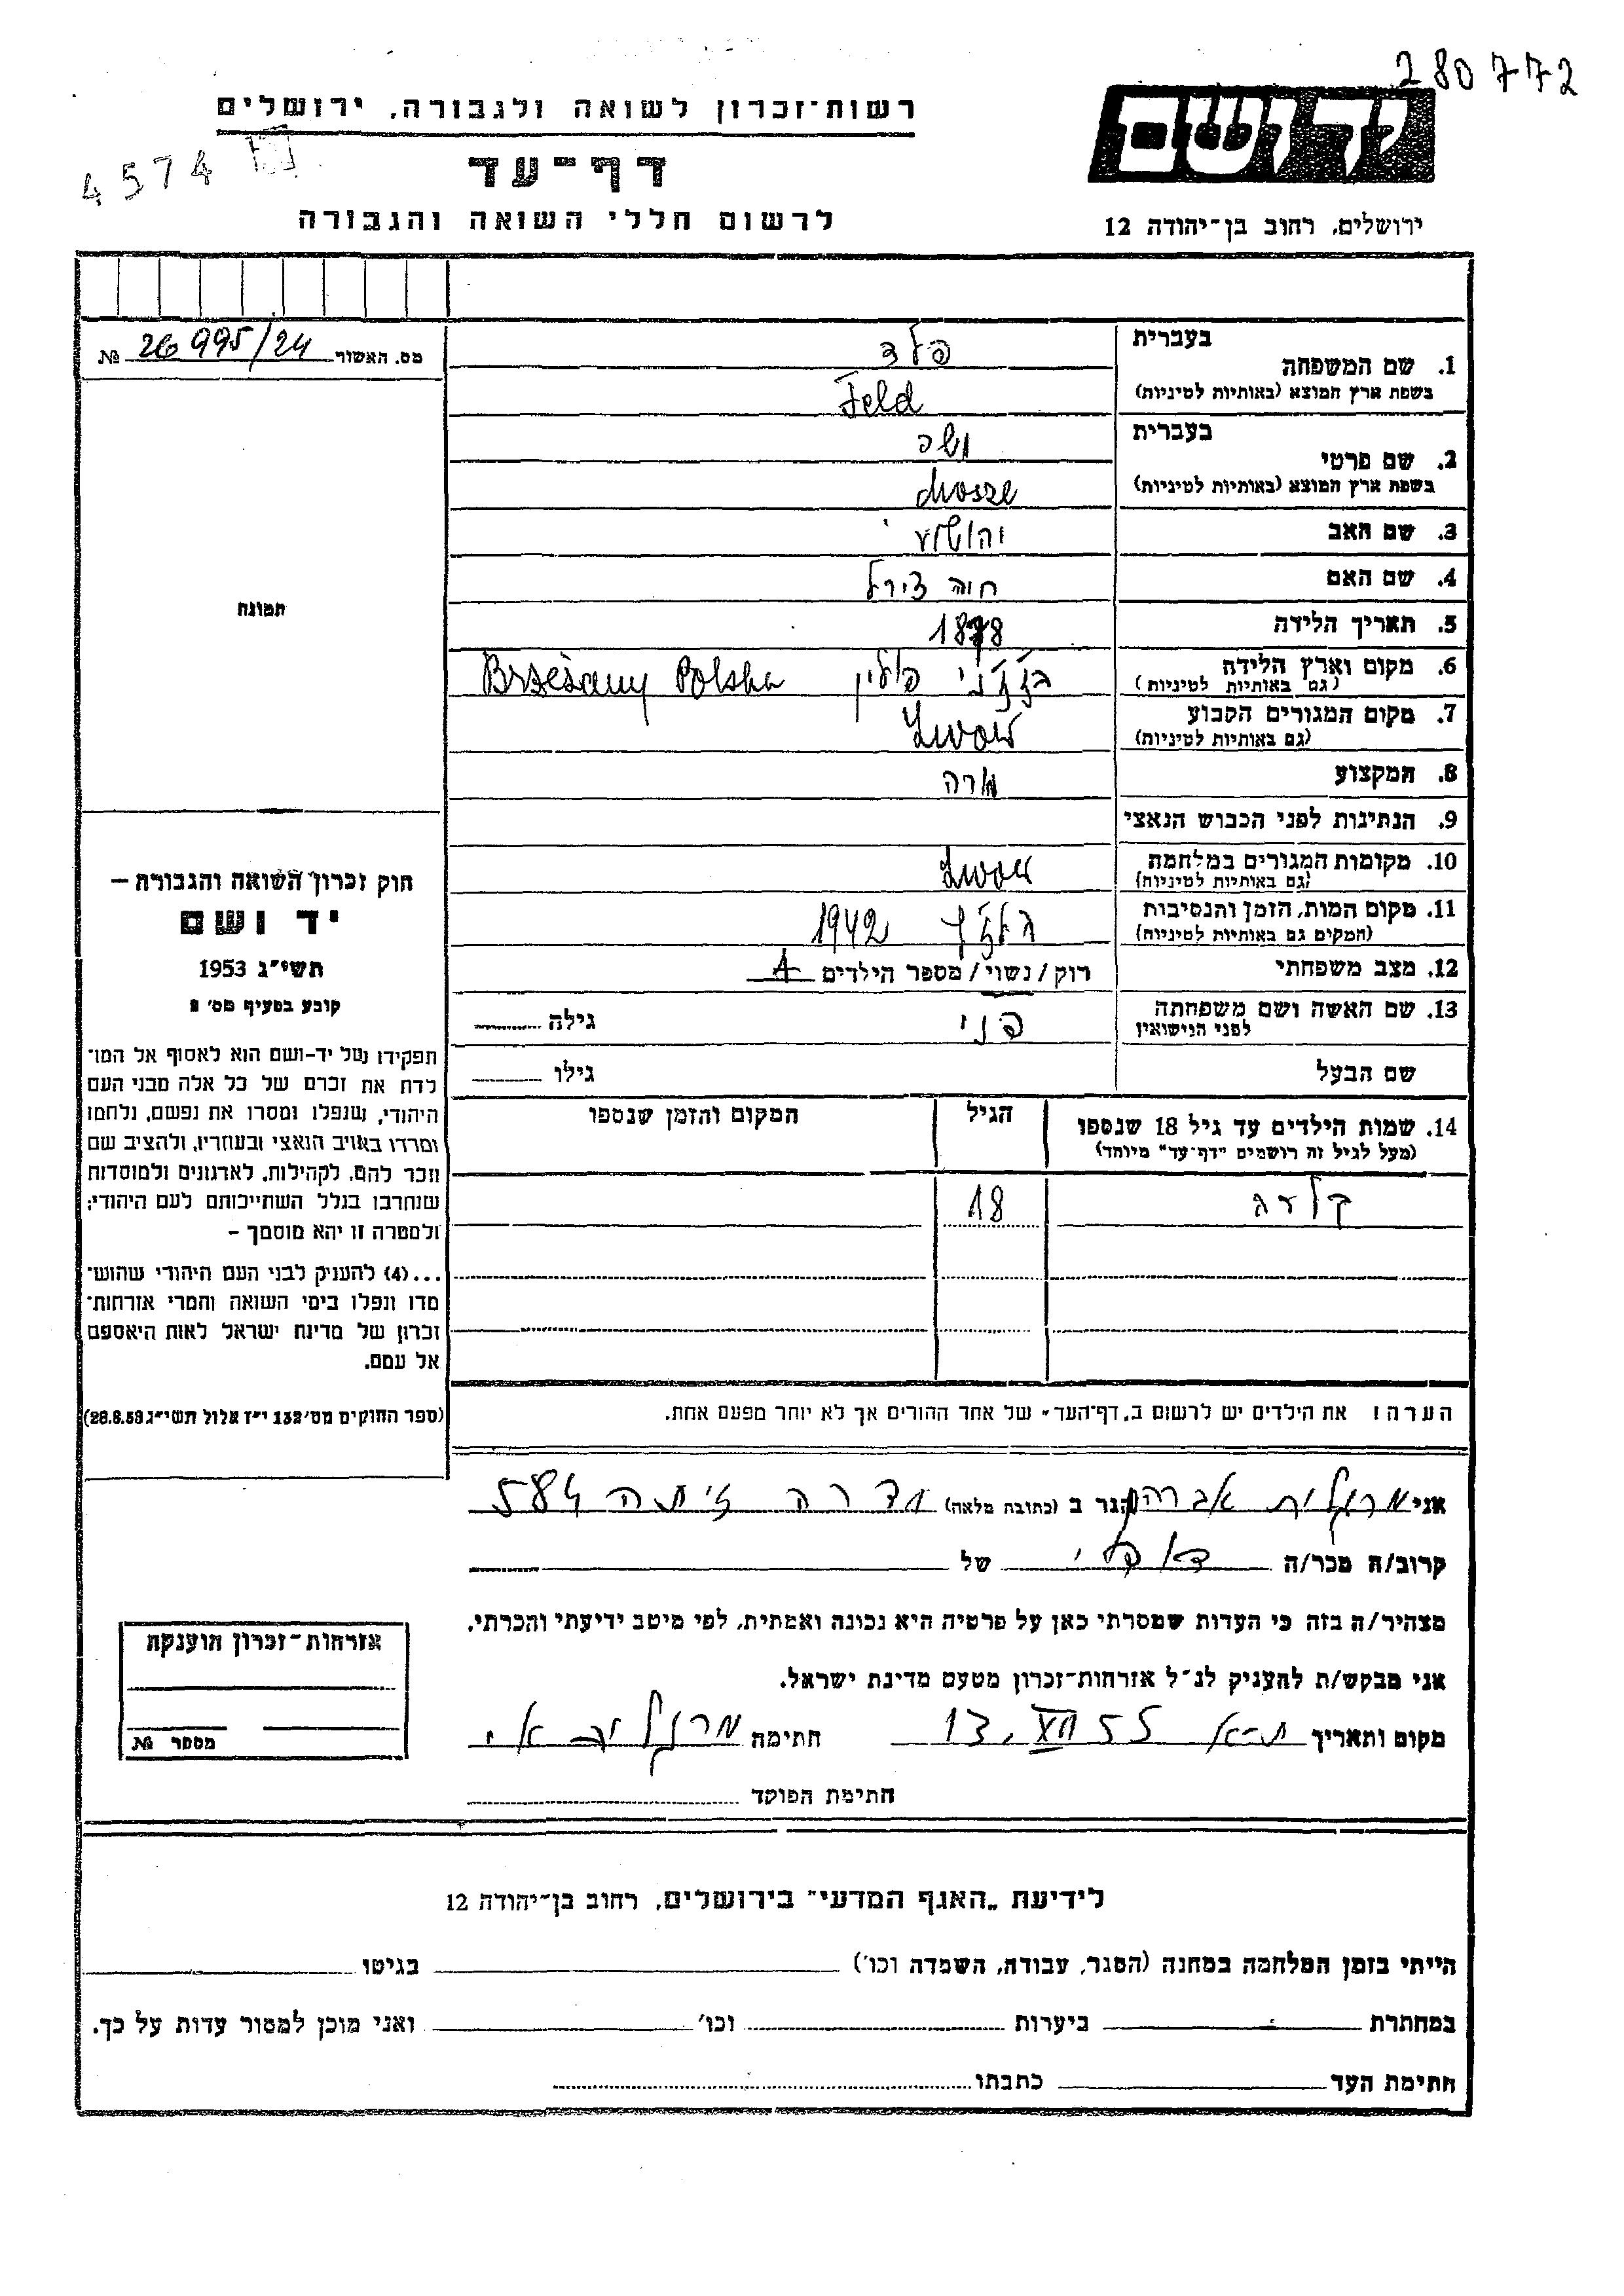 280772
רשות־זכרון לשואה ולגבורה, ירושלים
4574
דף־עד
לרשום חללי השואה והגבורה
ידושם
ירושלים, רחוב בן־יהודה 12
מס. האשור 26995/24 №
בעברית
1. שם המשפחה פלד
בשפת ארץ המוצא (באותיות לטיניות) Feld
בעברית
2. שם פרטי משה
בשפת ארץ המוצא (באותיות לטיניות) Mosze
3. שם האב יהושע
4. שם האם חוה צירל
5. תאריך הלידה 1878
6. מקום וארץ הלידה
(גם באותיות לטיניות) ברז'ז'ני פולין Brzeżany Polska
7. מקום המגורים הקבוע Lwow
(גם באותיות לטיניות)
8. המקצוע מורה
9. הנתינות לפני הכבוש הנאצי
10. מקומות המגורים במלחמה Lwow
(גם באותיות לטיניות)
11. מקום המות, הזמן והנסיבות בלז'ץ 1942
(המקום גם באותיות לטיניות)
12. מצב משפחתי רוק/נשוי/מספר הילדים
13. שם האשה ושם משפחתה פני גילה
לפני הנישואין
שם הבעל גילו
14. שמות הילדים עד גיל 18 שנספו הגיל המקום והזמן שנספו
(מעל לגיל זה רושמים "דף־עד" מיוחד)
קלרה 18
הערה: את הילדים יש לרשום ב„דף־העד" של אחד ההורים אך לא יותר מפעם אחת.
תמונה
חוק זכרון השואה והגבורה —
יד ושם
תשי״ג 1953
קובע בסעיף מס׳ 2
תפקידו של יד-ושם הוא לאסוף אל המו־
לדת את זכרם של כל אלה מבני העם
היהודי, שנפלו ומסרו את נפשם, נלחמו
ומרדו באויב הנאצי ובעוזריו, ולהציב שם
וזכר להם, לקהילות, לארגונים ולמוסדות
שנחרבו בגלל השתייכותם לעם היהודי;
ולמטרה זו יהא מוסמך —
...(4) להעניק לבני העם היהודי שהוש־
מדו ונפלו בימי השואה והמרי אזרחות־
זכרון של מדינת ישראל לאות היאספם
אל עמם.
(ספר החוקים מס׳ 132 י״ז אלול תשי״ג 28.8.53)
אני מרגלית אברהם הגר ב (כתובת מלאה) חדרה 584
קרוב/ה מכר/ה של
מצהיר/ה בזה כי העדות שמסרתי כאן על פרטיה היא נכונה ואמתית, לפי מיטב ידיעתי והכרתי.
אני מבקש/ת להעניק לנ״ל אזרחות־זכרון מטעם מדינת ישראל.
מקום ותאריך ת-א 13.XII 55 חתימה מרגלית א
חתימת הפוקד
אזרחות־זכרון הוענקה
מספר №
לידיעת „האגף המדעי" בירושלים, רחוב בן־יהודה 12
הייתי בזמן המלחמה במחנה (הסגר, עבודה, השמדה וכו׳) בגיטו
במחתרת ביערות וכו׳ ואני מוכן למסור עדות על כך.
חתימת העד כתבתו